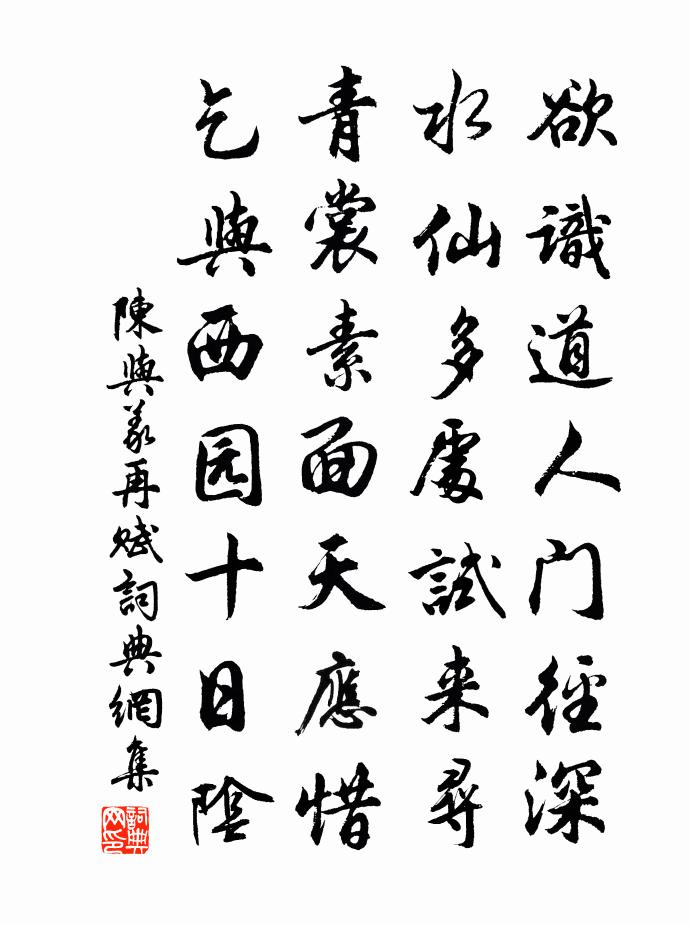 欲識道人門徑深
水仙多處試来尋
青裳素面天應惜
乞與西园十日陰
陳與義再赋詞典網集
詞典网印